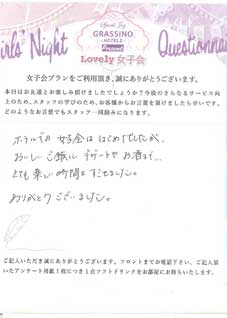 Girls' Night Questionnai
Sparkle Joy
GRASSINO
HOTELS
Lovely女子会
女子会プランをご利用頂き、誠にありがとうございます。
本日はお友達とお楽しみ頂けましたでしょうか？今後のさらなるサービス向上
のため、スタッフの学びのため、お客様からお言葉を頂けましたら幸いです。
どのようなお言葉でもスタッフ一同励みになります。
ホテルでの女子会ははじめてでしたが、
おいしいご飯にデザートやお酒まで…
とても楽しい時間をすごせました。
ありがとうございました。
ご記入いただき誠にありがとうございます。フロントまでお電話下さい。ご記入頂
いたアンケート用紙1段につき1点ソフトドリンクをお部屋にお持ちいたします。